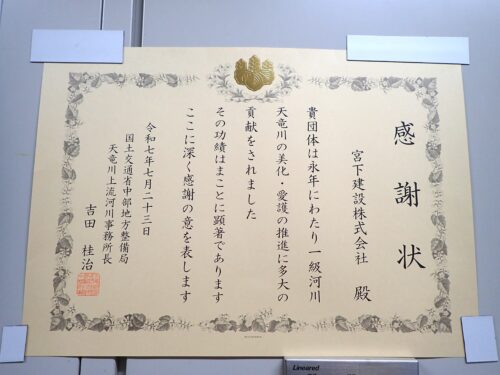 感謝状
宮下建設株式会社 殿
貴団体は永年にわたり一級河川
天竜川の美化・愛護の推進に多大の
貢献をされました
その功績はまことに顕著であります
ここに深く感謝の意を表します
令和七年七月二十三日
国土交通省中部地方整備局
天竜川上流河川事務所長
吉田 桂治
Lineared